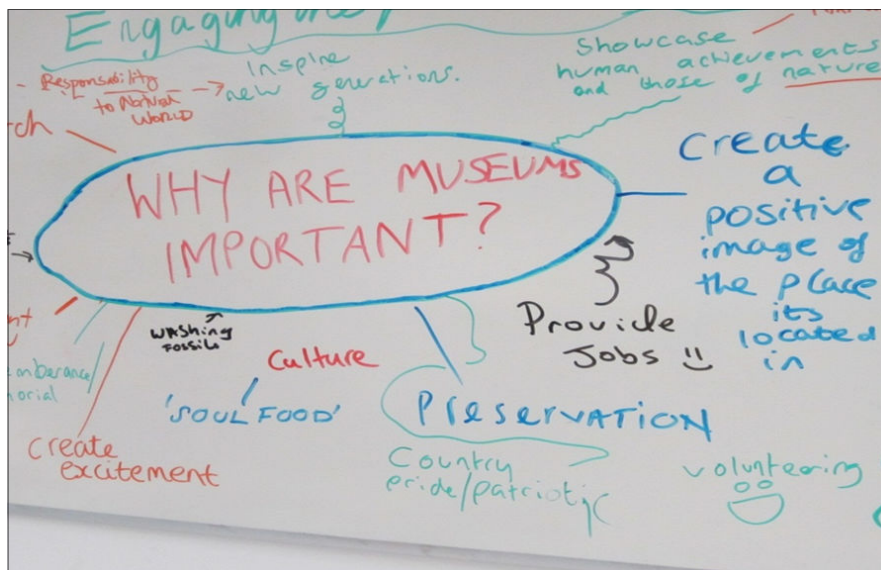 Engaging
Responsibility
to Natural
WORLD
Inspire
new generations.
Showcase
human achievements
and those of nature
WHY ARE MUSEUMS
IMPORTANT?
Create
a
positive
image of
the place
its
located
in
Provide
Jobs
WASHING
FOSSILS
Culture
'SOUL FOOD'
PRESERVATION
create
excitement
Country
pride/patriotic
volunteering